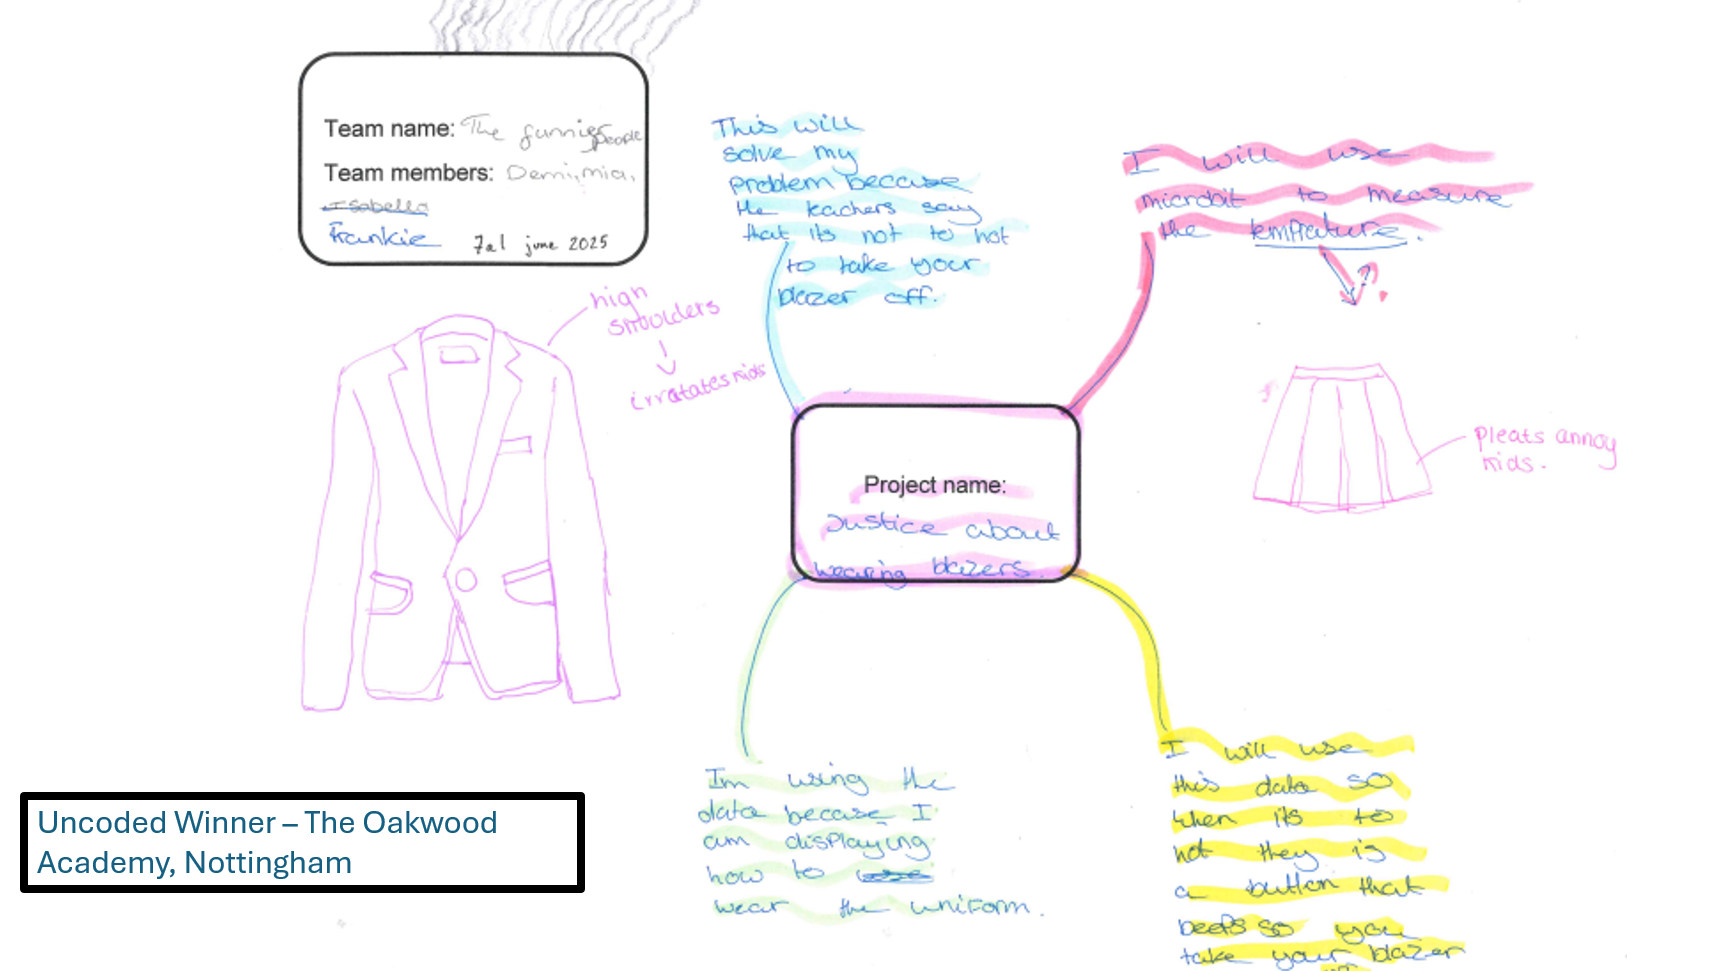 Team name: The funnies people
Team members: Demi, mia,
Isabella
Frankie 7a1 june 2025
This will
solve my
problem because
the teachers say
that its not to hot
to take your
blazer off.
I will use
microbit to measure
the temprature.
high
shoulders
irratates kids
Project name:
Justice about
wearing blazers.
pleats annoy
kids.
Im using the
data because I
am displaying
how to
wear the uniform.
I will use
this data so
when its to
hot they is
a button that
beeps so you
take your blazer
Uncoded Winner – The Oakwood
Academy, Nottingham